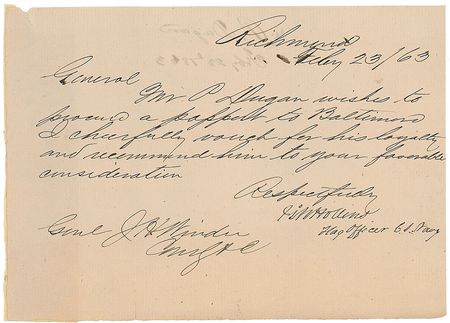 Richmond
Feby 23/63
General
Mr P. Dugan wishes to
procure a passport to Baltimore
I cheerfully vouch for his loyalty
and recommend him to your favorable
consideration
Respectfully
Flag Officer C.S. Navy
Genl J H Winder